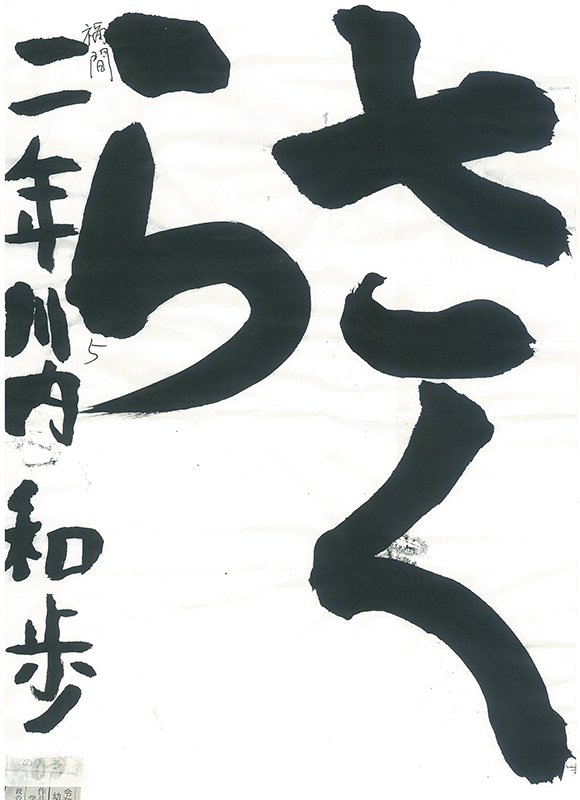 さくら
二年川内和歩
福間
5